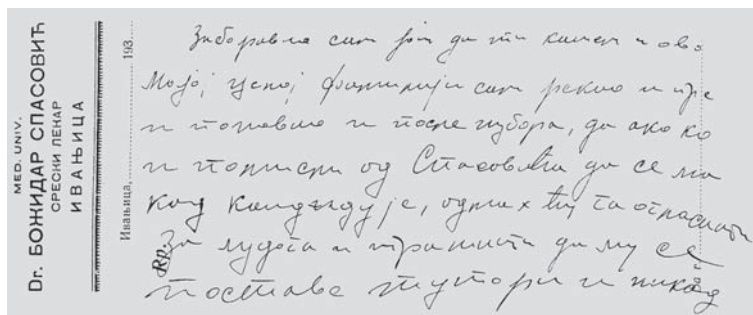 MED. UNIV.
Dr. БОЖИДАР СПАСОВИЋ
СРЕСКИ ЛЕКАР
ИВАЊИЦА
Ивањица, 193
Rp.
Заборавио сам још да ти кажем и ово
Мојој целој фамилији сам рекао и пре
и поновио и после избора, да ако ко
и помисли од Спасовића да се ма
кад кандидује, одмах ћу га огласити
За лудога и тражити да му се
поставе тутори и никад